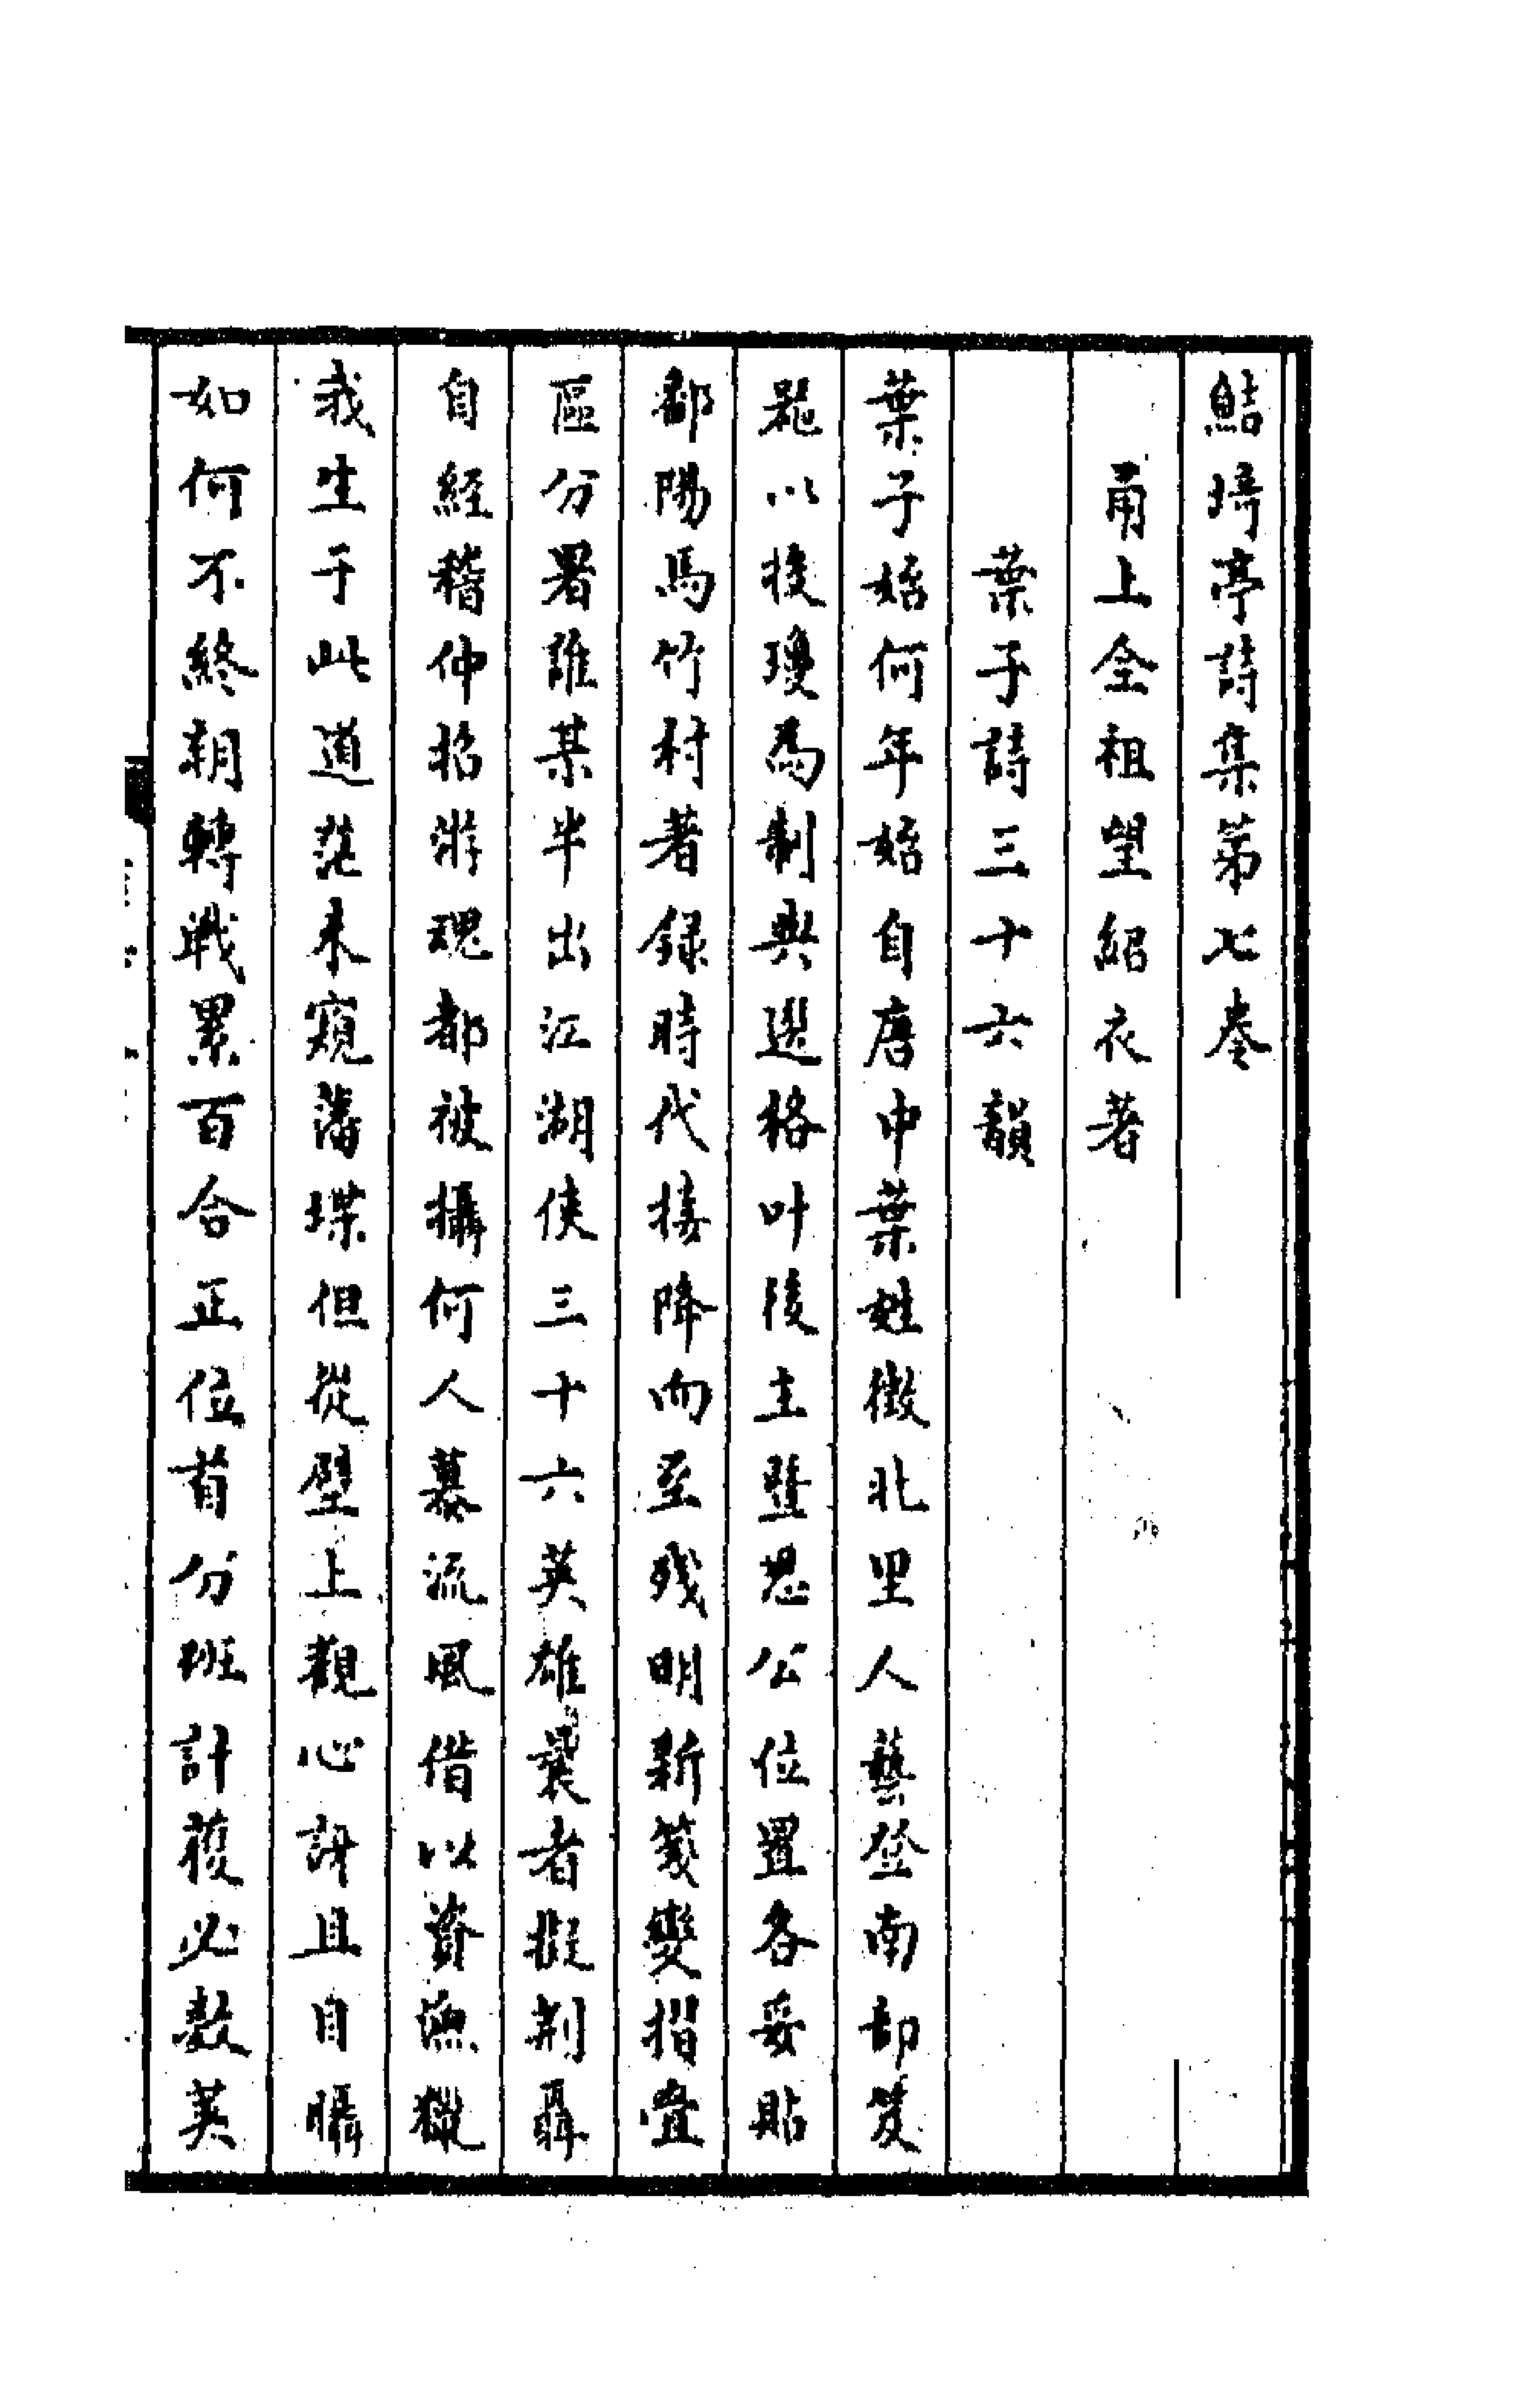 鮚埼亭詩集第七卷
甬上全祖望紹衣著
葉子詩三十六韻
葉子始何年始自唐中葉姓徵北里人藝登南部笈
㲋以投瓊為制典選格叶後主暨恩公位置各妥貼
鄱陽馬竹村著録時代接降而至殘明新箋變摺疊
區分署誰某半出江湖俠三十六英雄曩者擬荆聶
自經稽仲招游魂都被攝何人慕流風借以資漁獵
我生于此道茫未窺藩堞但從壁上觀心訝且自囁
如何不終朝轉戰累百合正位首分班計獲必數莢